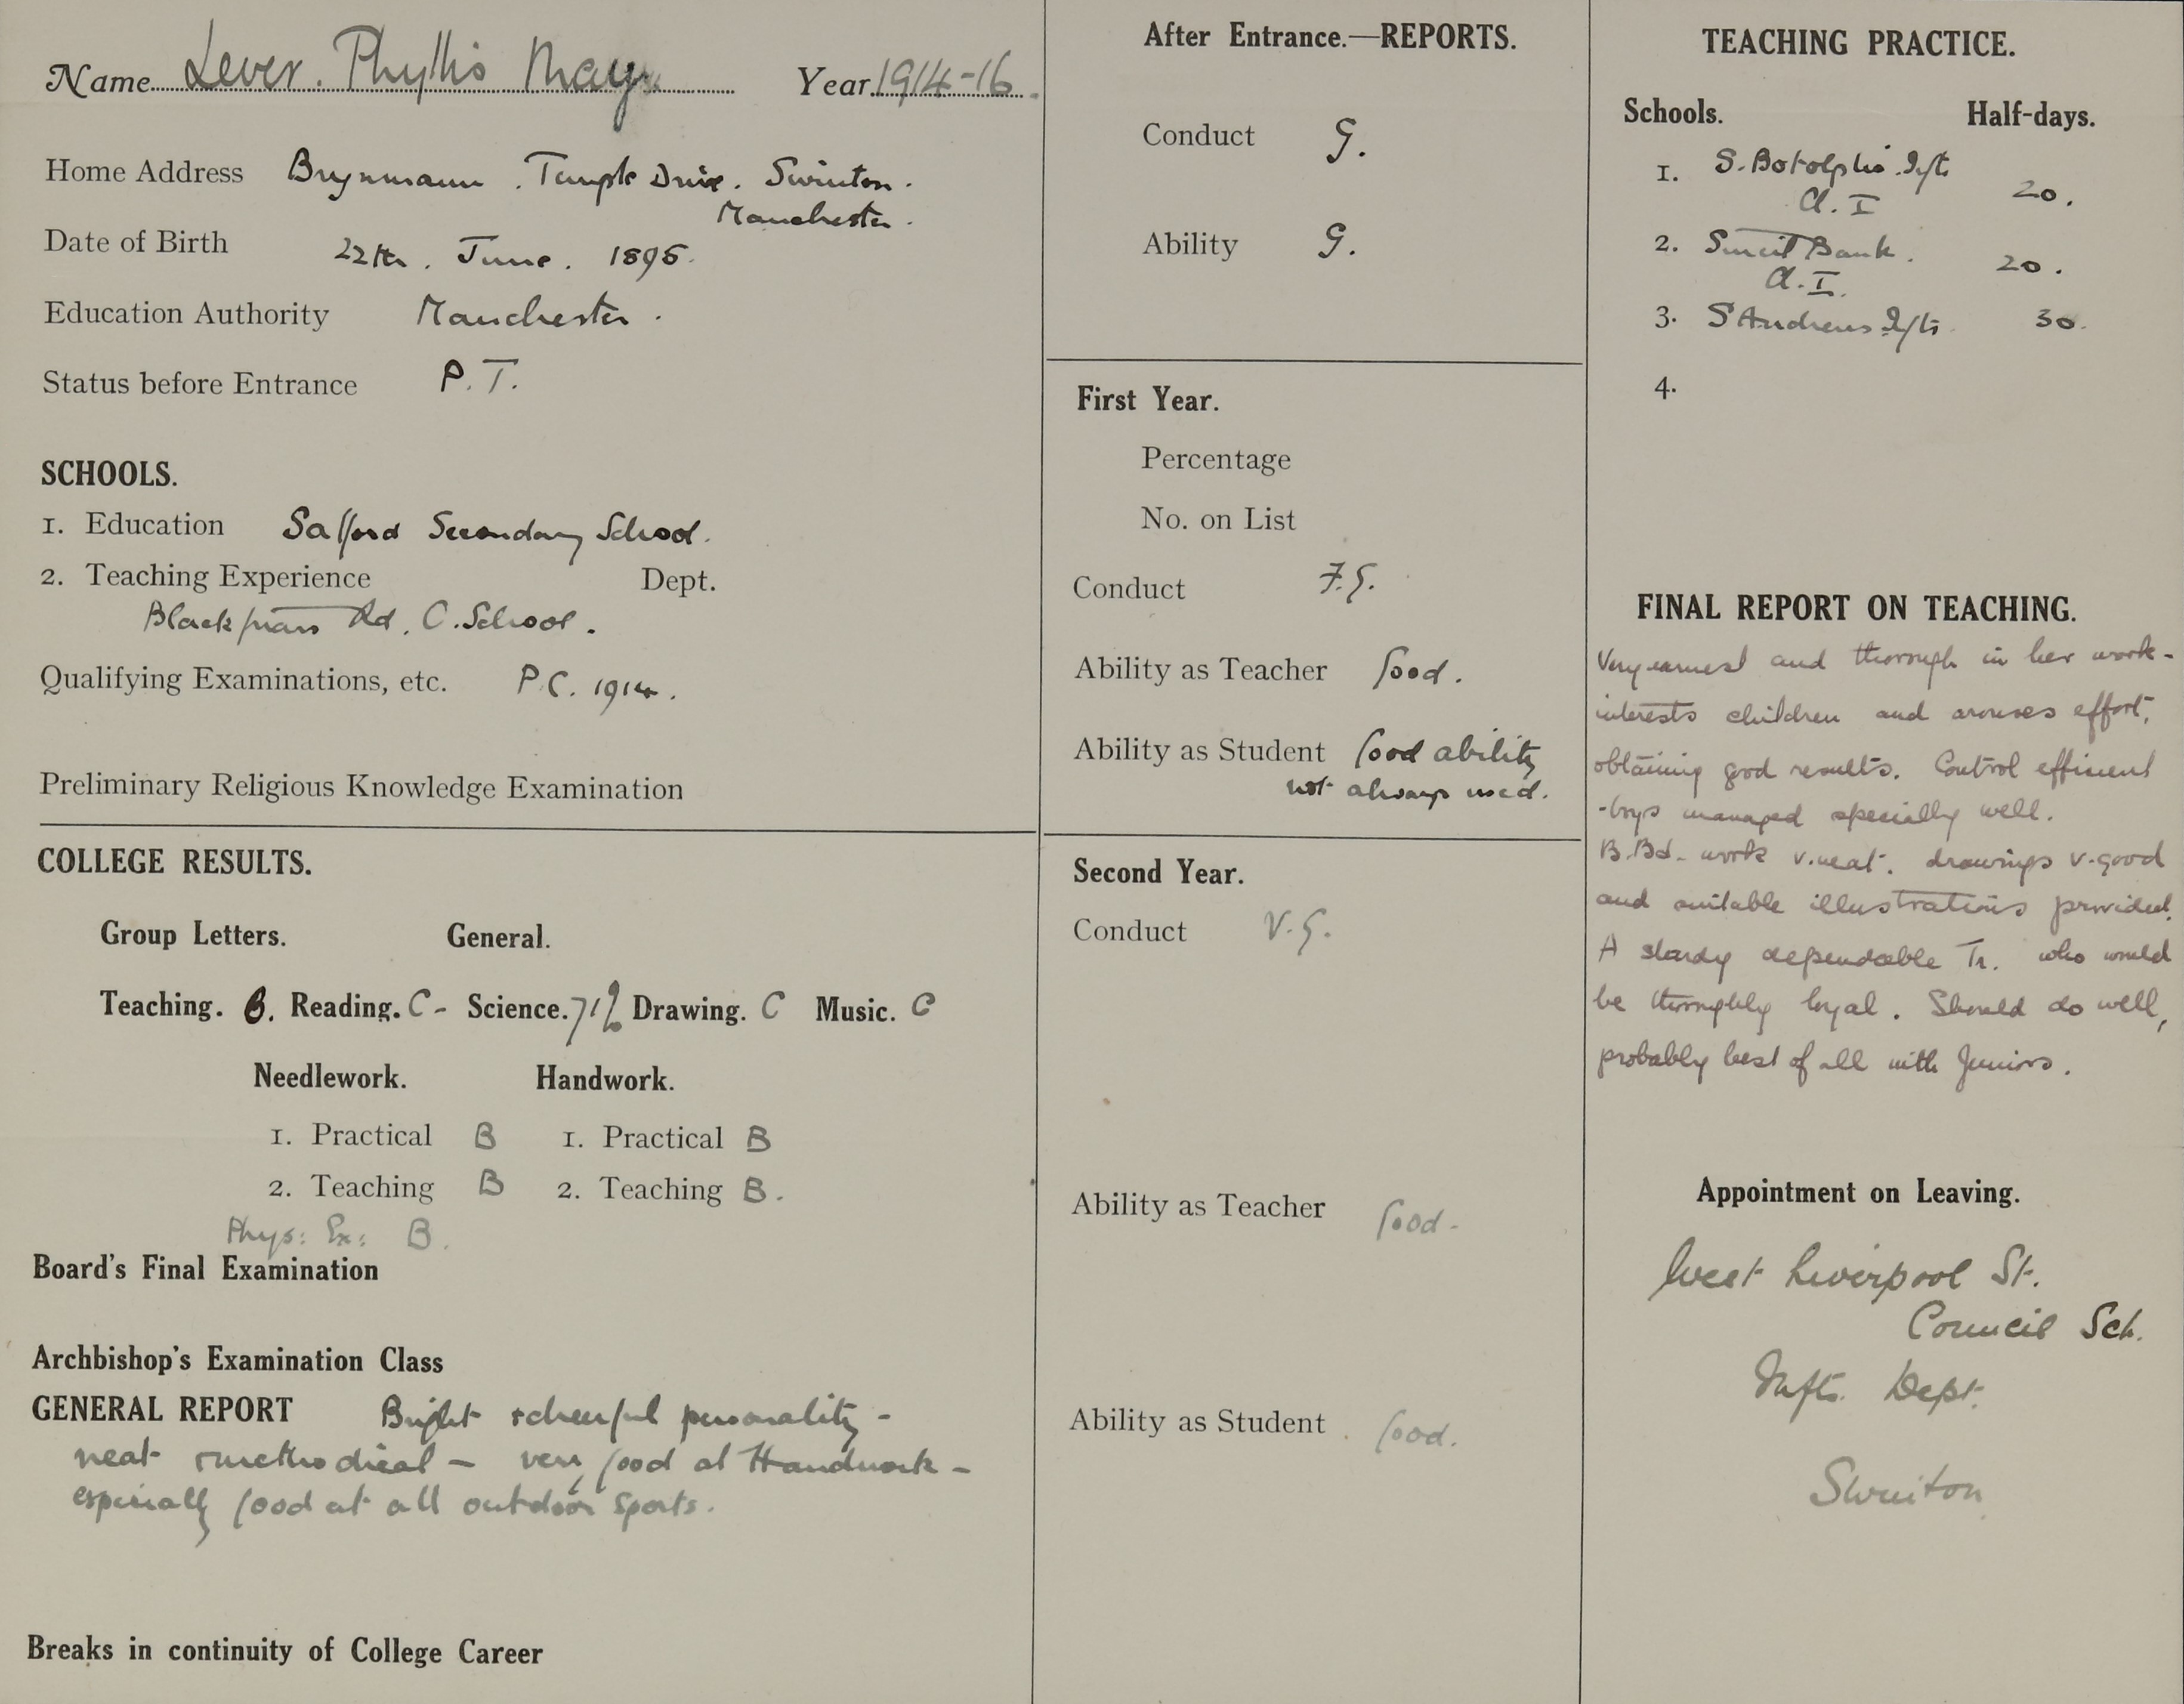 Name Lever. Phyllis May. Year 1914-16.
Home Address Brynmawr. Temple Drive. Swinton.
Manchester.
Date of Birth 22th. June. 1895.
Education Authority Manchester.
Status before Entrance P.T.
SCHOOLS.
1. Education Salford Secondary School.
2. Teaching Experience Dept.
Rd. C. School.
Qualifying Examinations, etc. P.C. 1914.
Preliminary Religious Knowledge Examination
COLLEGE RESULTS.
Group Letters. General.
Teaching. B. Reading. C- Science. 71% Drawing. C Music. C
Needlework. Handwork.
1. Practical B 1. Practical B
2. Teaching B 2. Teaching B.
Phys: Ex: B.
Board's Final Examination
Archbishop's Examination Class
GENERAL REPORT Bright & cheerful personality -
neat & methodical - very good at Handwork -
especially good at all outdoor sports.
Breaks in continuity of College Career
After Entrance.—REPORTS.
Conduct G.
Ability G.
First Year.
Percentage
No. on List
Conduct F.G.
Ability as Teacher Good.
Ability as Student Good ability
not always used.
Second Year.
Conduct V.G.
Ability as Teacher Good.
Ability as Student Good.
TEACHING PRACTICE.
Schools. Half-days.
1. S. Botolph's Infts
Cl. I 20.
2. Sincil Bank.
Cl. I. 20.
3. S Andrews Infts 30.
4.
FINAL REPORT ON TEACHING.
Very earnest and thorough in her work -
interests children and arouses effort,
obtaining good results. Control efficient
-boys managed specially well.
B.Bd. work v. neat. drawings v. good
and suitable illustrations provided.
A steady dependable Tr. who would
be thoroughly loyal. Should do well,
probably best of all with Juniors.
Appointment on Leaving.
West Liverpool St.
Council Sch.
Infts. Dept.
Swinton